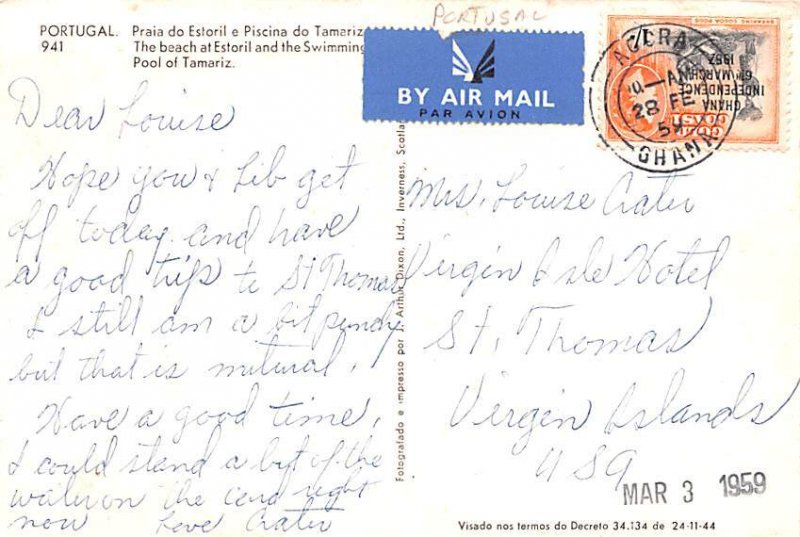 PORTUGAL. Praia do Estoril e Piscina do Tamariz
941 The beach at Estoril and the Swimming
Pool of Tamariz.
PORTUGAL
BY AIR MAIL
PAR AVION
ACCRA
28 FE
GHANA
GHANA
INDEPENDENCE
6TH MARCH
1957
GOLD
COAST
Dear Louise
Hope you & Lib get
off today and have
a good trip to St Thomas
I still am a bit
but that is mutural.
Have a good time,
I could stand a bit of the
water on the card right
now Love
Mrs. Louise
Virgin Isle Hotel
St. Thomas
Virgin Islands
USA
MAR 3 1959
Fotografado e impresso por J. Arthur Dixon, Ltd., Inverness, Scotla
Visado nos termos do Decreto 34.134 de 24-11-44